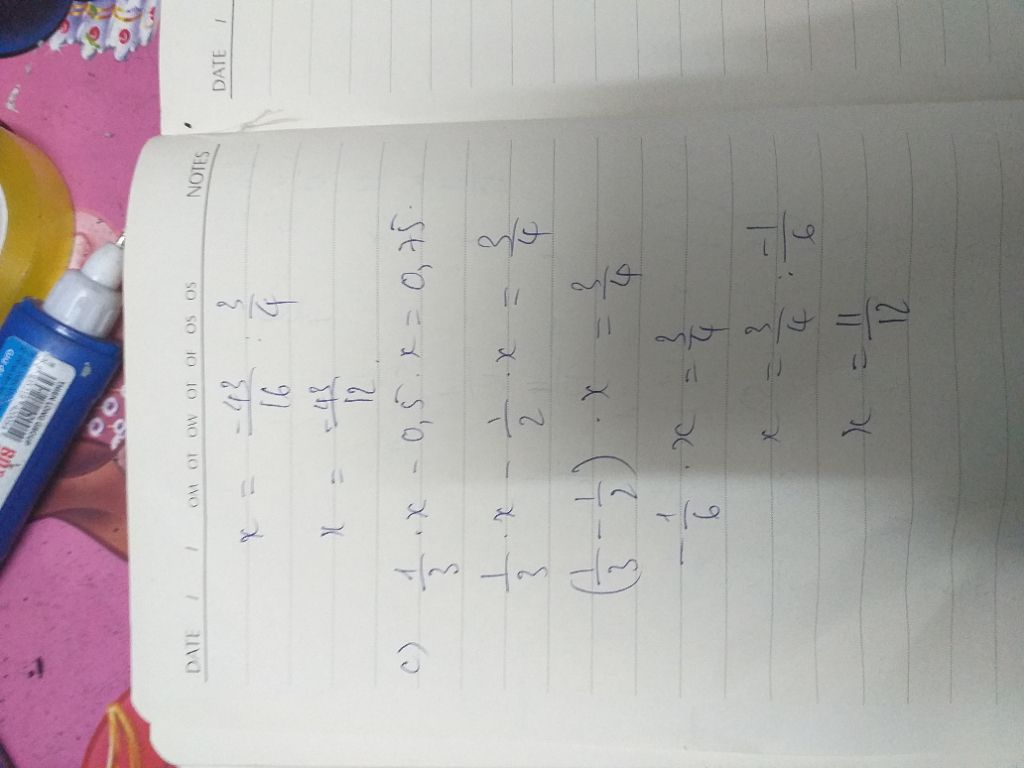 DATE / /
DATE / / OM OT OW OT OF OS OS NOTES
x = -43/16 : 3/4
x = -43/12
c) 1/3 . x - 0,5 . x = 0,75.
1/3 . x - 1/2 . x = 3/4
(1/3 - 1/2) . x = 3/4
-1/6 . x = 3/4
x = 3/4 : -1/6
x = 11/12